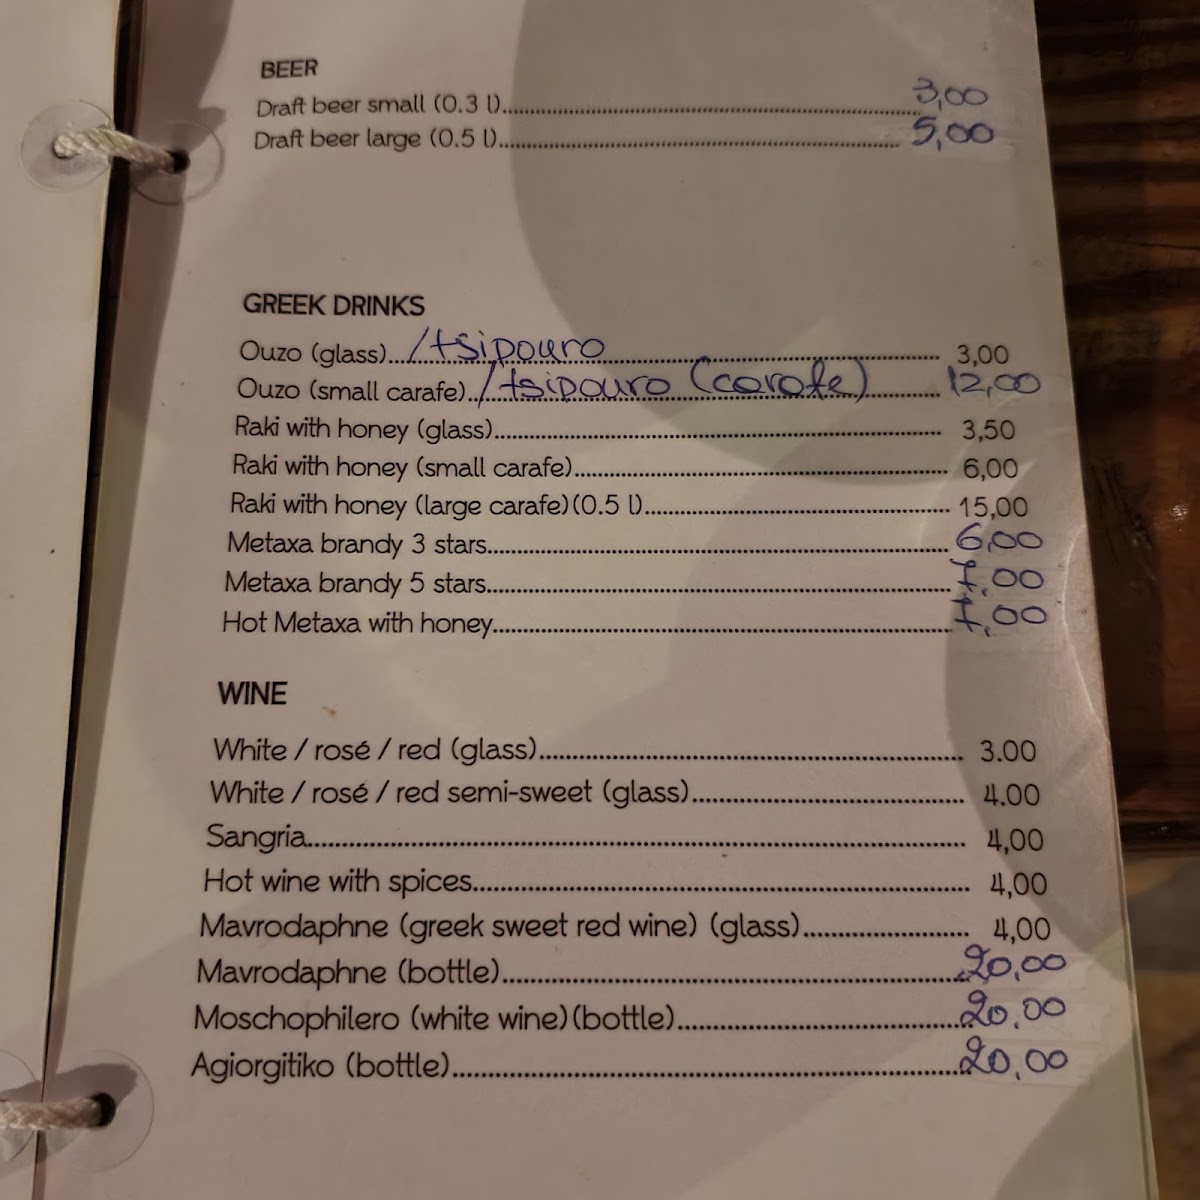 BEER
Draft beer small (0.3 l)........ 3,00
Draft beer large (0.5 l)........ 5,00
GREEK DRINKS
Ouzo (glass)... /tsipouro ........ 3,00
Ouzo (small carafe).. /tsipouro (carafe) ........ 12,00
Raki with honey (glass)........ 3,50
Raki with honey (small carafe)........ 6,00
Raki with honey (large carafe)(0.5 l)........ 15,00
Metaxa brandy 3 stars........ 6,00
Metaxa brandy 5 stars........ 7,00
Hot Metaxa with honey........ 7,00
WINE
White / rosé / red (glass)........ 3.00
White / rosé / red semi-sweet (glass)........ 4.00
Sangria........ 4,00
Hot wine with spices........ 4,00
Mavrodaphne (greek sweet red wine) (glass)........ 4,00
Mavrodaphne (bottle)........ 20,00
Moschophilero (white wine)(bottle)........ 20,00
Agiorgitiko (bottle)........ 20,00